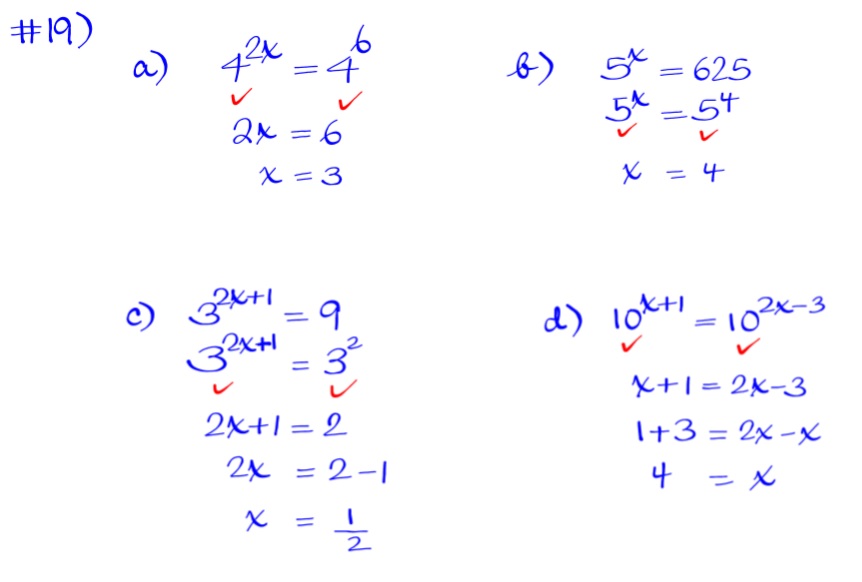 #19)
a) 4^{2x} = 4^6
2x = 6
x = 3
b) 5^x = 625
5^x = 5^4
x = 4
c) 3^{2x+1} = 9
3^{2x+1} = 3^2
2x+1 = 2
2x = 2-1
x = 1/2
d) 10^{x+1} = 10^{2x-3}
x+1 = 2x-3
1+3 = 2x-x
4 = x